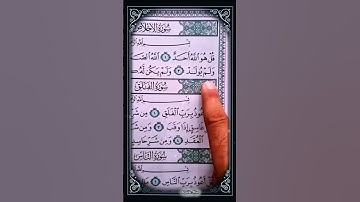 سُورَةُ الْإِخْلَاصِ
قُلْ هُوَ اللَّهُ أَحَدٌ ١ اللَّهُ
وَلَمْ يُولَدْ ٣ وَلَمْ يَكُنْ لَهُ
سُورَةُ الْفَلَقِ
أَعُوذُ بِرَبِّ الْفَلَقِ ١ مِنْ
غَاسِقٍ إِذَا وَقَبَ ٣ وَمِنْ
الْعُقَدِ ٤ وَمِنْ شَرِّ حَاسِدٍ
سُورَةُ النَّاسِ
أَعُوذُ بِرَبِّ النَّاسِ ١